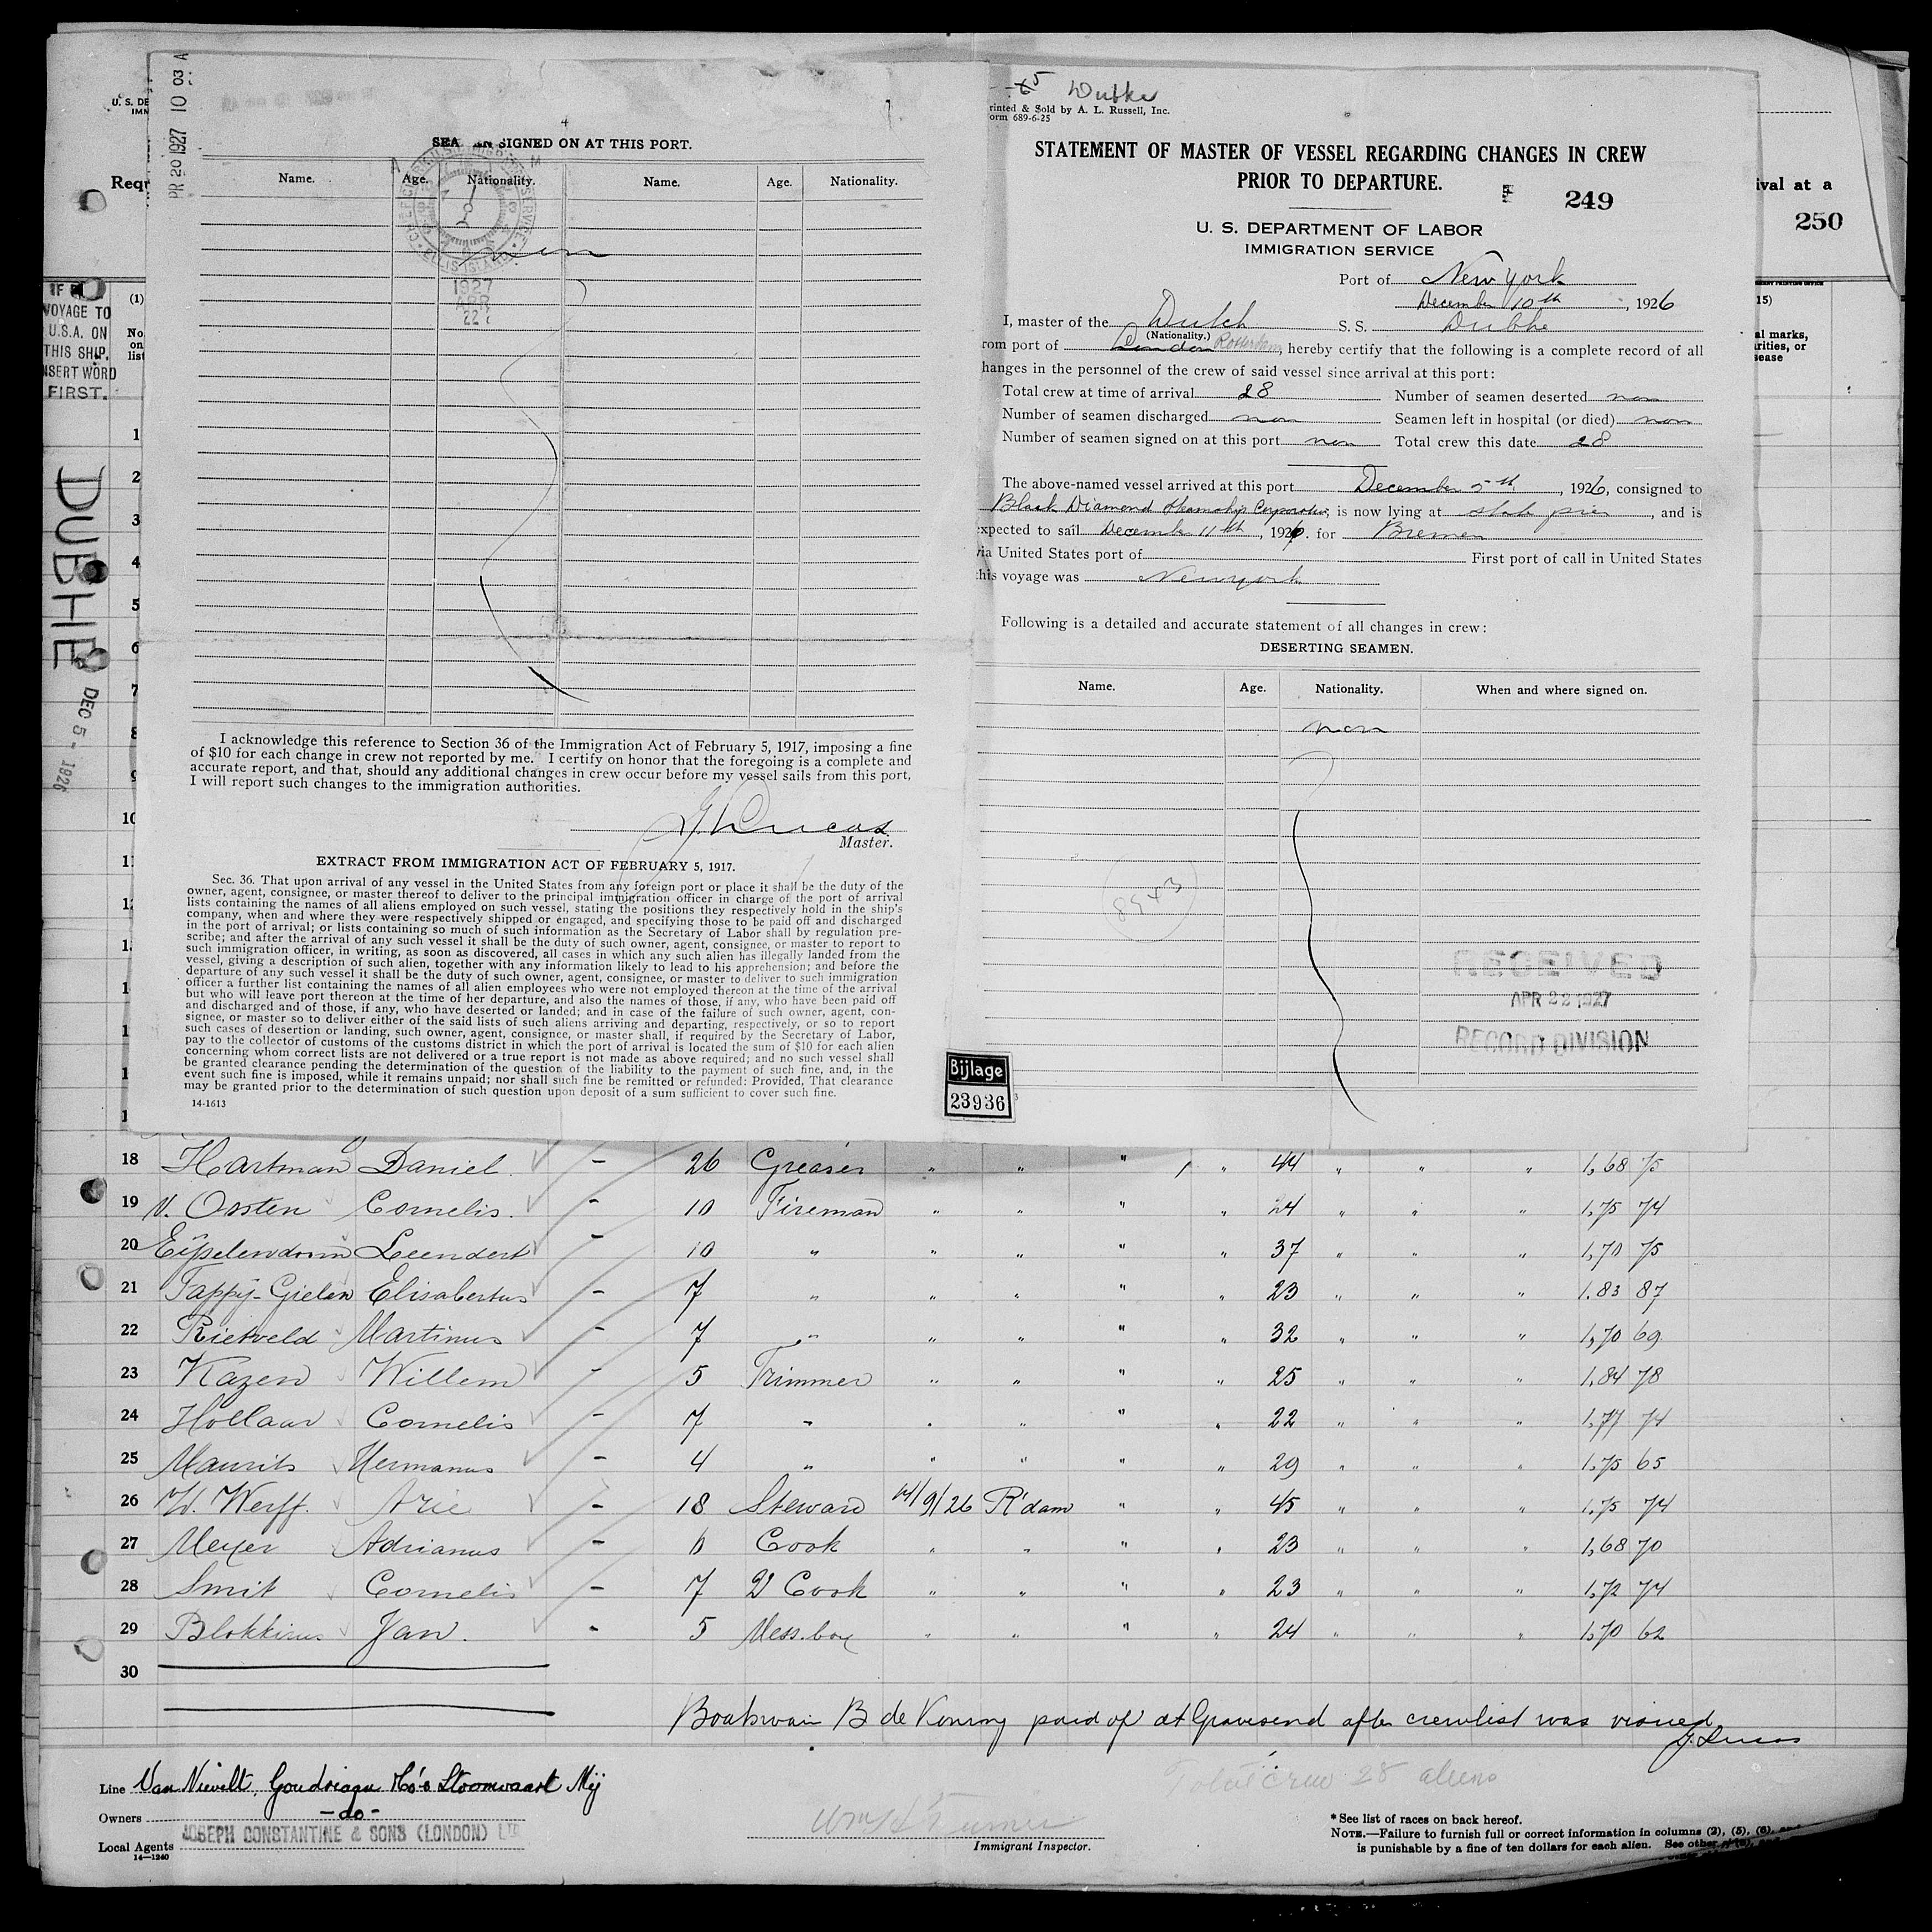 PR 20 1927 10 03 A
4
SEA EN SIGNED ON AT THIS PORT.
Name. Age. Nationality. Name. Age. Nationality.
non
1927
APR
22
I acknowledge this reference to Section 36 of the Immigration Act of February 5, 1917, imposing a fine
of $10 for each change in crew not reported by me. I certify on honor that the foregoing is a complete and
accurate report, and that, should any additional changes in crew occur before my vessel sails from this port,
I will report such changes to the immigration authorities.
Master.
EXTRACT FROM IMMIGRATION ACT OF FEBRUARY 5, 1917.
Sec. 36. That upon arrival of any vessel in the United States from any foreign port or place it shall be the duty of the
owner, agent, consignee, or master thereof to deliver to the principal immigration officer in charge of the port of arrival
lists containing the names of all aliens employed on such vessel, stating the positions they respectively hold in the ship's
company, when and where they were respectively shipped or engaged, and specifying those to be paid off and discharged
in the port of arrival; or lists containing so much of such information as the Secretary of Labor shall by regulation pre-
scribe; and after the arrival of any such vessel it shall be the duty of such owner, agent, consignee, or master to report to
such immigration officer, in writing, as soon as discovered, all cases in which any such alien has illegally landed from the
vessel, giving a description of such alien, together with any information likely to lead to his apprehension; and before the
departure of any such vessel it shall be the duty of such owner, agent, consignee, or master to deliver to such immigration
officer a further list containing the names of all alien employees who were not employed thereon at the time of the arrival
but who will leave port thereon at the time of her departure, and also the names of those, if any, who have been paid off
and discharged and of those, if any, who have deserted or landed; and in case of the failure of such owner, agent, con-
signee, or master so to deliver either of the said lists of such aliens arriving and departing, respectively, or so to report
such cases of desertion or landing, such owner, agent, consignee, or master shall, if required by the Secretary of Labor,
pay to the collector of customs of the customs district in which the port of arrival is located the sum of $10 for each alien
concerning whom correct lists are not delivered or a true report is not made as above required; and no such vessel shall
be granted clearance pending the determination of the question of the liability to the payment of such fine, and, in the
event such fine is imposed, while it remains unpaid; nor shall such fine be remitted or refunded: Provided, That clearance
may be granted prior to the determination of such question upon deposit of a sum sufficient to cover such fine.
14-1613
Dubhe
rinted & Sold by A. L. Russell, Inc.
orm 689-6-25
STATEMENT OF MASTER OF VESSEL REGARDING CHANGES IN CREW
PRIOR TO DEPARTURE.
249
U. S. DEPARTMENT OF LABOR
IMMIGRATION SERVICE
Port of New York
December 10th, 1926
I, master of the Dutch S. S. Dubhe
(Nationality.)
rom port of London Rotterdam, hereby certify that the following is a complete record of all
hanges in the personnel of the crew of said vessel since arrival at this port:
Total crew at time of arrival 28 Number of seamen deserted non
Number of seamen discharged non Seamen left in hospital (or died) non
Number of seamen signed on at this port non Total crew this date 28
The above-named vessel arrived at this port December 5th, 1926, consigned to
Black Diamond Steamship Corporation, is now lying at state pier, and is
expected to sail December 11th, 1926. for Bremen
via United States port of First port of call in United States
this voyage was New york
Following is a detailed and accurate statement of all changes in crew:
DESERTING SEAMEN.
Name. Age. Nationality. When and where signed on.
non
8943
RECEIVED
APR 22 1927
RECORD DIVISION
Bijlage
23936
U. S. DE
IMM
Requ
ival at a
250
IF
VOYAGE TO
U.S.A. ON
THIS SHIP,
NSERT WORD
FIRST.
(1)
No.
on
list
15)
al marks,
rities, or
sease
DUBHE
DEC 5 - 1926
1
2
3
4
5
6
7
8
9
10
11
12
1
1
1
1
1
18 Hartman Daniel. - 26 Greaser " " " " 44 " " " 1,68 75
19 v. Osten Cornelis. - 10 Fireman " " " " 24 " " " 1,75 74
20 Eijselendoorn Leendert - 10 " " " " " 37 " " " 1,70 75
21 Tappij-Gielen Elisabertus - 7 " " " " " 23 " " " 1.83 87
22 Rietveld Martinus - 7 " " " " " 32 " " " 1,70 69
23 Kazen Willem - 5 Trimmer " " " " 25 " " " 1.84 78
24 Hollaar Cornelis - 7 " " " " " 22 " " " 1,77 74
25 Maurits Hermanus - 4 " " " " " 29 " " " 1.75 65
26 v/d. Werff. Arie - 18 Steward 14/9/26 R'dam " " 45 " " " 1.75 74
27 Meyer Adrianus - 6 Cook " " " " 23 " " " 1,68 70
28 Smit Cornelis - 7 2d Cook " " " " 23 " " " 1,72 74
29 Jan. - 5 Mess.boy " " " " 24 " " " 1,70 62
30
Boatswain B de Koning paid of at Gravesend after crewlist was visaed
Total crew 28 aliens
Line Van Nievelt, Goudriaan & Co's Stoomvaart Mij
Owners -do-
Local Agents JOSEPH CONSTANTINE & SONS (LONDON) LTD
14-1240
Immigrant Inspector.
* See list of races on back hereof.
NOTE.—Failure to furnish full or correct information in columns (2), (5), (6), and
is punishable by a fine of ten dollars for each alien. See other